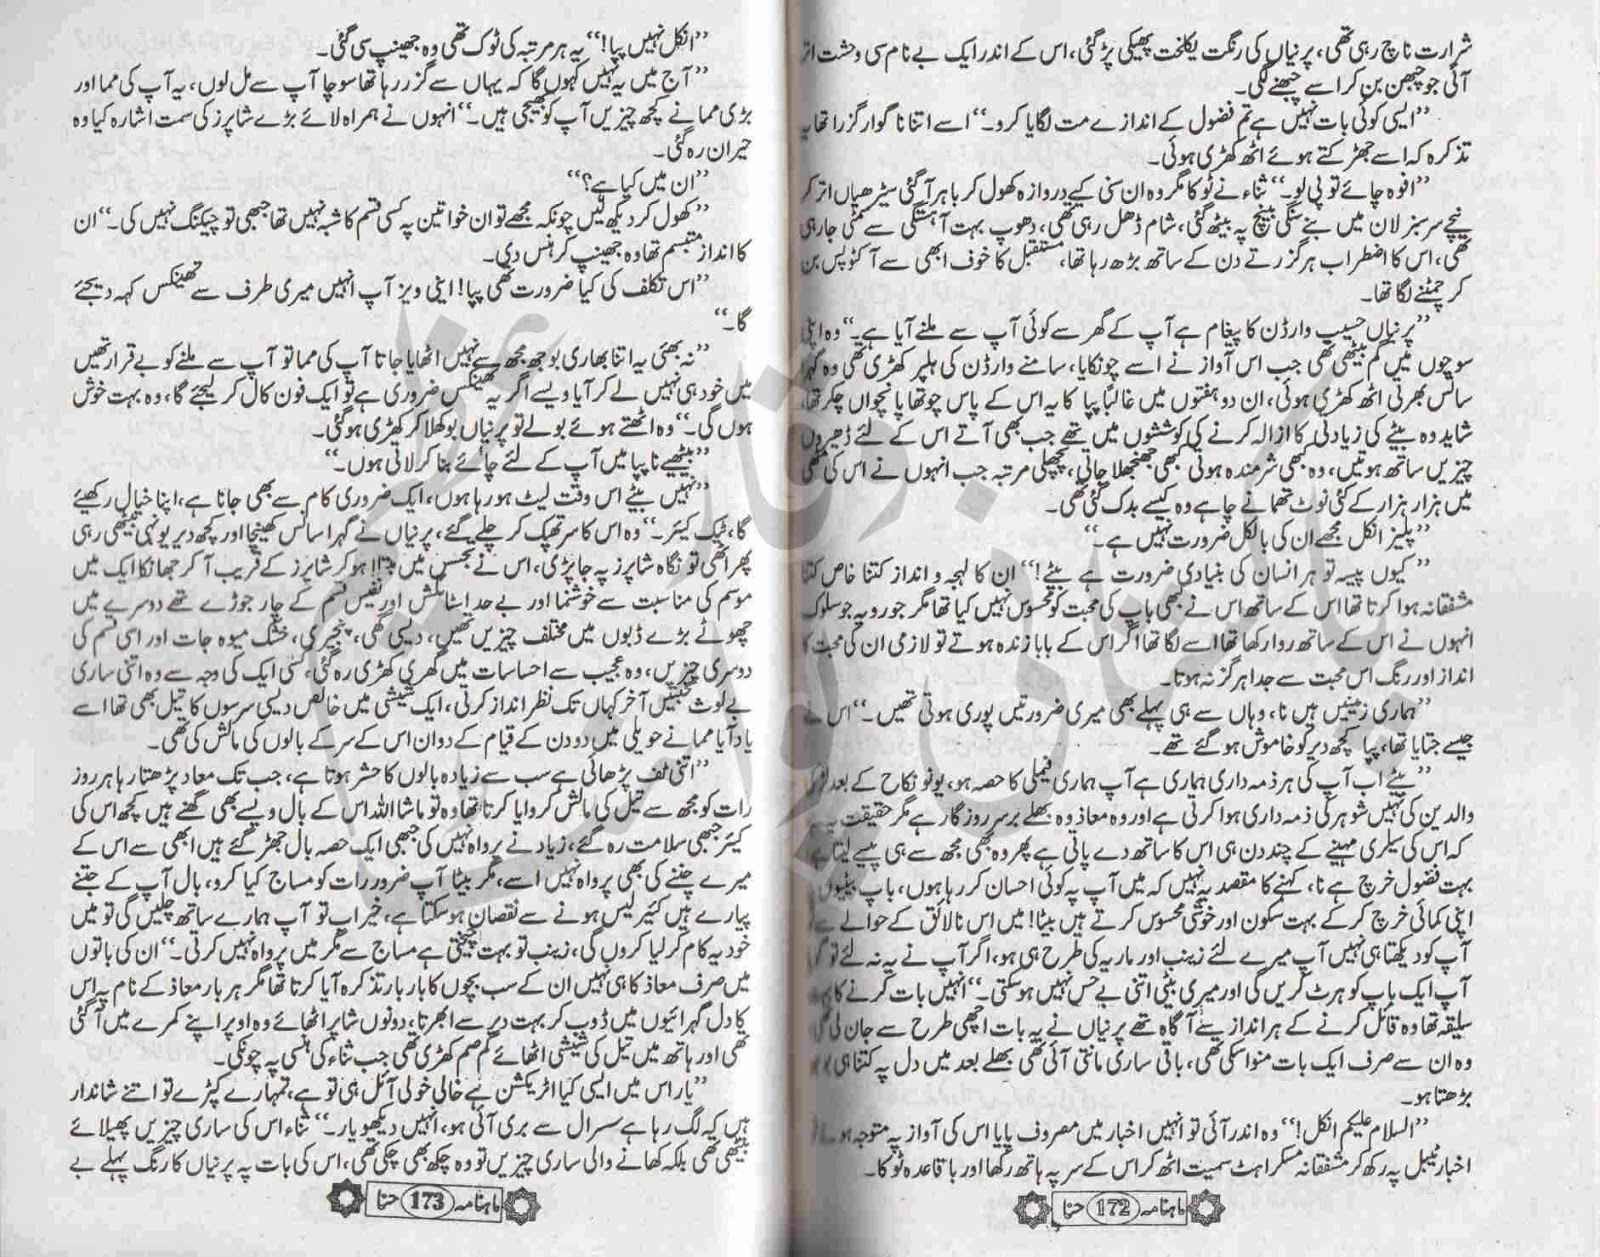 شرارت ناچ رہی تھی، پرنیاں کی رنگت یکلخت پھیکی پڑ گئی، اس کے اندر ایک بے نام سی وحشت اتر
آئی جو چبھن بن کر اسے چبھنے لگی۔
”ایسی کوئی بات نہیں ہے تم فضول کے اندازے مت لگایا کرو۔“ اسے اتنا ناگوار گزرا تھا یہ
تذکرہ کہ اسے جھڑکتے ہوئے اٹھ کھڑی ہوئی۔
”افوہ چائے تو پی لو۔“ ثناء نے ٹوکا مگر وہ ان سنی کیے دروازہ کھول کر باہر آ گئی سیڑھیاں اتر کر
نیچے سرسبز لان میں بنے سنگی بینچ پہ بیٹھ گئی، شام ڈھل رہی تھی، دھوپ بہت آہستگی سے سمٹی جا رہی
تھی، اس کا اضطراب ہر گزرتے دن کے ساتھ بڑھ رہا تھا، مستقبل کا خوف ابھی سے آکٹوپس بن
کر چمٹنے لگا تھا۔
”پرنیاں حسیب وارڈن کا پیغام ہے آپ کے گھر سے کوئی آپ سے ملنے آیا ہے۔“ وہ اپنی
سوچوں میں گم بیٹھی تھی جب اس آواز نے اسے چونکایا، سامنے وارڈن کی ہیلپر کھڑی تھی وہ گہرا
سانس بھرتی اٹھ کھڑی ہوئی، ان دو ہفتوں میں غالباً پپا کا یہ اس کے پاس چوتھا پانچواں چکر تھا،
شاید وہ بیٹے کی زیادتی کا ازالہ کرنے کی کوششوں میں تھے جب بھی آتے اس کے لئے ڈھیروں
چیزیں ساتھ ہوتیں، وہ کبھی شرمندہ ہوتی کبھی جھنجھلا جاتی، پچھلی مرتبہ جب انہوں نے اس کی مٹھی
میں ہزار ہزار کے کئی نوٹ تھمانے چاہے وہ کیسے بدک گئی تھی۔
”پلیز انکل مجھے ان کی بالکل ضرورت نہیں ہے۔“
”کیوں پیسہ تو ہر انسان کی بنیادی ضرورت ہے بیٹے!“ ان کا لہجہ و انداز کتنا خاص کتنا
مشفقانہ ہوا کرتا تھا اس کے ساتھ اس نے کبھی باپ کی محبت کو محسوس نہیں کیا تھا مگر جو رویہ جو سلوک
انہوں نے اس کے ساتھ روا رکھا تھا اسے لگا تھا اگر اس کے بابا زندہ ہوتے تو لازمی ان کی محبت کا
انداز اور رنگ اس محبت سے جدا ہرگز نہ ہوتا۔
”ہماری زمینیں ہیں نا، وہاں سے ہی پہلے بھی میری ضرورتیں پوری ہوتی تھیں۔“ اس نے
جیسے جتایا تھا، پپا کچھ دیر کو خاموش ہو گئے تھے۔
”بیٹے اب آپ کی ہر ذمہ داری ہماری ہے آپ ہماری فیملی کا حصہ ہو، یو نو نکاح کے بعد لڑکی
والدین کی نہیں شوہر کی ذمہ داری ہوا کرتی ہے اور وہ معاذ وہ بھلے برسر روزگار ہے مگر حقیقت یہ ہے
کہ اس کی سیلری مہینے کے چند دن ہی اس کا ساتھ دے پاتی ہے پھر وہ بھی مجھ سے ہی پیسے لیتا ہے
بہت فضول خرچ ہے نا، کہنے کا مقصد یہ نہیں کہ میں آپ پہ کوئی احسان کر رہا ہوں، باپ بیٹیوں پہ
اپنی کمائی خرچ کر کے بہت سکون اور خوشی محسوس کرتے ہیں بیٹا! میں اس نالائق کے حوالے سے
آپ کو دیکھتا ہی نہیں آپ میرے لئے زینب اور ماریہ کی طرح ہی ہو، اگر آپ نے یہ نہ لئے تو
آپ ایک باپ کو ہرٹ کریں گی اور میری بیٹی اتنی بے حس نہیں ہو سکتی۔“ انہیں بات کرنے کا
سلیقہ تھا وہ قائل کرنے کے ہر انداز سے آگاہ تھے پرنیاں نے یہ بات اچھی طرح سے جان لی تھی
وہ ان سے صرف ایک بات منوا سکی تھی، باقی ساری مانتی آئی تھی بھلے بعد میں دل پہ کتنا ہی بوجھ
بڑھتا ہو۔
”السلام علیکم انکل!“ وہ اندر آئی تو انہیں اخبار میں مصروف پایا اس کی آواز پہ متوجہ ہوئے
اخبار ٹیبل پہ رکھ کر مشفقانہ مسکراہٹ سمیت اٹھ کر اس کے سر پہ ہاتھ رکھا اور باقاعدہ ٹوکا۔
ماہنامہ حنا 172
”انکل نہیں پپا!“ یہ ہر مرتبہ کی ٹوک تھی وہ جھینپ سی گئی۔
”آج میں یہ نہیں کہوں گا کہ یہاں سے گزر رہا تھا سوچا آپ سے مل لوں، یہ آپ کی مما اور
بڑی ممانے کچھ چیزیں آپ کو بھیجی ہیں۔“ انہوں نے ہمراہ لائے بڑے شاپرز کی سمت اشارہ کیا وہ
حیران رہ گئی۔
”ان میں کیا ہے؟“
”کھول کر دیکھ لیں چونکہ مجھے تو ان خواتین پہ کسی قسم کا شبہ نہیں تھا جبھی تو چیکنگ نہیں کی۔“ ان
کا انداز متبسم تھا وہ جھینپ کر ہنس دی۔
”اس تکلف کی کیا ضرورت تھی پپا! اینی ویز آپ انہیں میری طرف سے تھینکس کہہ دیجئے
گا۔“
”نہ بھئی یہ اتنا بھاری بوجھ مجھ سے نہیں اٹھایا جاتا آپ کی مما تو آپ سے ملنے کو بے قرار تھیں
میں خود ہی نہیں لے کر آیا ویسے اگر یہ تھینکس ضروری ہے تو ایک فون کال کر لیجئے گا، وہ بہت خوش
ہوں گی۔“ وہ اٹھتے ہوئے بولے تو پرنیاں بوکھلا کر کھڑی ہو گئی۔
”بیٹھیے نا پپا میں آپ کے لئے چائے بنا کر لاتی ہوں۔“
”نہیں بیٹے اس وقت لیٹ ہو رہا ہوں، ایک ضروری کام سے بھی جانا ہے، اپنا خیال رکھیئے
گا، ٹیک کیئر۔“ وہ اس کا سر تھپک کر چلے گئے، پرنیاں نے گہرا سانس کھینچا اور کچھ دیر یونہی بیٹھی رہی
پھر اٹھی تو نگاہ شاپرز پہ جا پڑی، اس نے تجسس میں مبتلا ہو کر شاپرز کے قریب آ کر جھانکا ایک میں
موسم کی مناسبت سے خوشنما اور بے حد اسٹائلش اور نفیس قسم کے چار جوڑے تھے دوسرے میں
چھوٹے بڑے ڈبوں میں مختلف چیزیں تھیں، دیسی گھی، پنجیری، خشک میوہ جات اور اسی قسم کی
دوسری چیزیں، وہ عجیب سے احساسات میں گھری کھڑی رہ گئی، کسی ایک کی وجہ سے وہ اتنی ساری
بے لوث محبتیں آخر کہاں تک نظر انداز کرتی، ایک شیشی میں خالص دیسی سرسوں کا تیل بھی تھا اسے
یاد آیا ممانے حویلی میں دو دن کے قیام کے دوان اس کے سر کے بالوں کی مالش کی تھی۔
”اتنی ٹف پڑھائی ہے سب سے زیادہ بالوں کا حشر ہوتا ہے، جب تک معاذ پڑھتا رہا ہر روز
رات کو مجھ سے تیل کی مالش کروایا کرتا تھا وہ تو ماشاء اللہ اس کے بال ویسے بھی گھنے ہیں کچھ اس کی
کیئر جبھی سلامت رہ گئے، زیاد نے پرواہ نہیں کی جبھی ایک حصہ بال جھڑ گئے ہیں ابھی سے اس کے
میرے چننے کی بھی پرواہ نہیں اسے، مگر بیٹا آپ ضرور رات کو مساج کیا کرو، بال آپ کے جتنے
پیارے ہیں کیئر لیس ہونے سے نقصان ہو سکتا ہے، خیر اب تو آپ ہمارے ساتھ چلیں گی تو میں
خود یہ کام کر لیا کروں گی، زینب تو بہت چیختی ہے مساج سے مگر میں پرواہ نہیں کرتی۔“ ان کی باتوں
میں صرف معاذ کا ہی نہیں ان کے سب بچوں کا بار بار تذکرہ آیا کرتا تھا مگر ہر بار معاذ کے نام پہ اس
کا دل گہرائیوں میں ڈوب کر بہت دیر سے ابھرتا، دونوں شاپر اٹھائے وہ اوپر اپنے کمرے میں آ گئی
تھی اور ہاتھ میں تیل کی شیشی اٹھائے گم صم کھڑی تھی جب ثناء کی ہنسی پہ چونکی۔
”یار اس میں ایسی کیا اٹریکشن ہے خالی خولی آئل ہی تو ہے، تمہارے کپڑے تو اتنے شاندار
ہیں کہ لگ رہا ہے سسرال سے بری آئی ہو، انہیں دیکھو یار۔“ ثناء اس کی ساری چیزیں پھیلائے
بیٹھی تھی بلکہ کھانے والی ساری چیزیں تو وہ چکھ بھی چکی تھی، اس کی بات پہ پرنیاں کا رنگ پہلے بے
ماہنامہ حنا 173